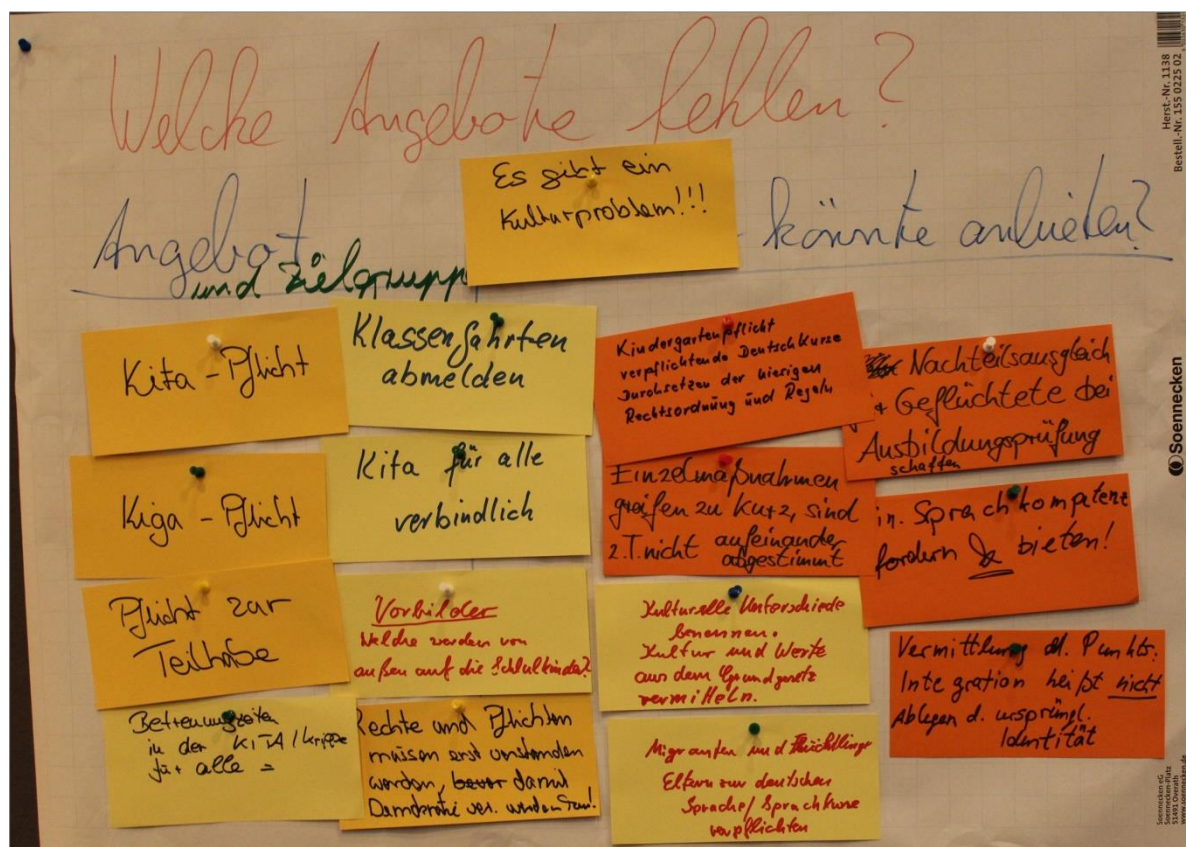 Welche Angebote fehlen?
Es gibt ein
Kulturproblem!!!
Angebot
und Zielgruppe
könnte anbieten?
Kita-Pflicht
Kiga-Pflicht
Pflicht zur
Teilhabe
Betreuungszeiten
in der KITA/Krippe
für alle =
Klassenfahrten
abmelden
Kita für alle
verbindlich
Vorbilder
Welche werden von
außen auf die Schulkinder?
Rechte und Pflichten
müssen erst verstanden
werden, bevor damit
Demokratie
Kindergartenpflicht
verpflichtende Deutschkurse
Durchsetzen der hiesigen
Rechtsordnung und Regeln
Einzelmaßnahmen
greifen zu kurz, sind
z.T. nicht aufeinander
abgestimmt
Kulturelle Unterschiede
benennen.
Kultur und Werte
aus dem Grundgesetz
vermitteln.
Migranten und Flüchtlinge
Eltern zur deutschen
Sprache/Sprachkurse
verpflichten
Nachteilsausgleich
Geflüchtete bei
Ausbildungsprüfung
schaffen
in. Sprachkompetenz
fordern & bieten!
Vermittlung d. Punkts:
Integration heißt nicht
Ablegen d. ursprüngl.
Identität
Herst.-Nr. 1138
Bestell.-Nr. 155 0225 02
Soennecken
Soennecken eG
Soennecken-Platz
51491 Overath
www.soennecken.de